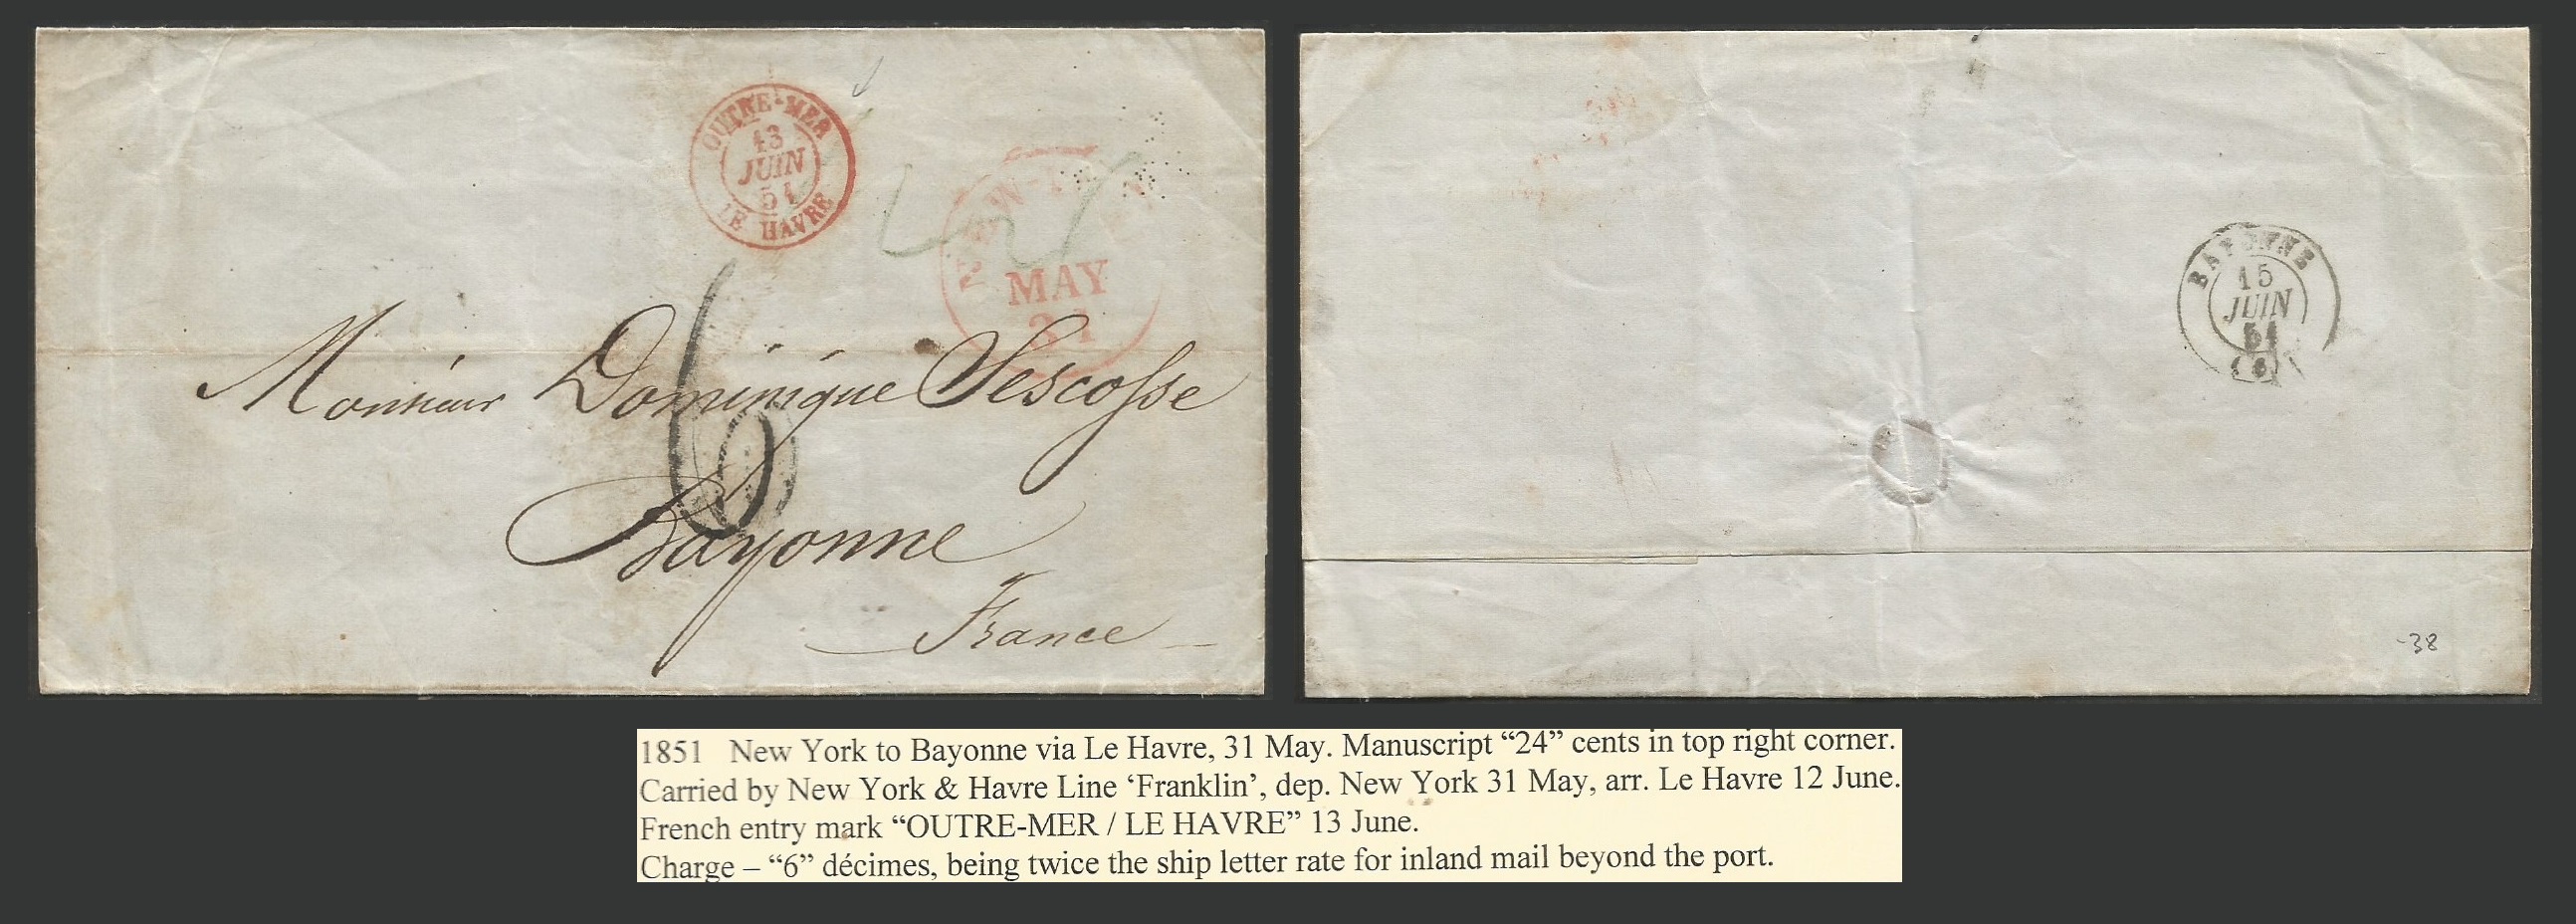 OUTRE-MER
13
JUIN
51
LE HAVRE
NEW-YORK
MAY
31
6
Monsieur Dominique Sescosse
Bayonne
France
BAYONNE
15
JUIN
51
(64)
-38
1851 New York to Bayonne via Le Havre, 31 May. Manuscript “24” cents in top right corner.
Carried by New York & Havre Line ‘Franklin’, dep. New York 31 May, arr. Le Havre 12 June.
French entry mark “OUTRE-MER / LE HAVRE” 13 June.
Charge – “6” décimes, being twice the ship letter rate for inland mail beyond the port.